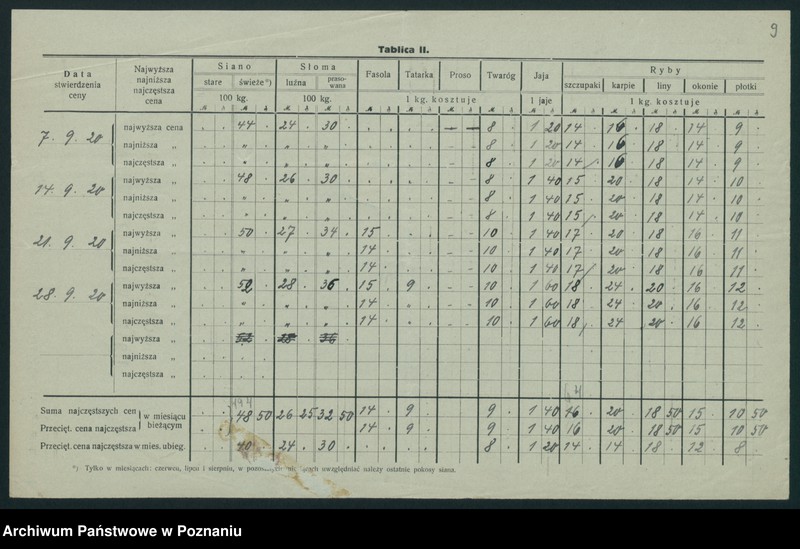 9
Tablica II.
Data stwierdzenia ceny | Najwyższa najniższa najczęstsza cena | Siano | Słoma | Fasola | Tatarka | Proso | Twaróg | Jaja | Ryby
stare | świeże*) | luźna | prasowana | szczupaki | karpie | liny | okonie | płotki
100 kg. | 100 kg. | 1 kg. kosztuje | 1 jaje | 1 kg. kosztuje
7. 9. 20 | najwyższa cena | 44 | 24 | 30 | — | — | 8 | 1 20 | 14 | 16 | 18 | 14 | 9
najniższa „ | „ | „ | „ | 8 | 1 20 | 14 | 16 | 18 | 14 | 9
najczęstsza „ | „ | „ | „ | 8 | 1 20 | 14 | 16 | 18 | 14 | 9
14. 9. 20 | najwyższa „ | 48 | 26 | 30 | 8 | 1 40 | 15 | 20 | 18 | 14 | 10
najniższa „ | „ | „ | „ | 8 | 1 40 | 15 | 20 | 18 | 14 | 10
najczęstsza „ | „ | „ | „ | 8 | 1 40 | 15 | 20 | 18 | 14 | 10
21. 9. 20 | najwyższa „ | 50 | 27 | 34 | 15 | 10 | 1 40 | 17 | 20 | 18 | 16 | 11
najniższa „ | „ | „ | „ | 14 | 10 | 1 40 | 17 | 20 | 18 | 16 | 11
najczęstsza „ | „ | „ | „ | 14 | 10 | 1 40 | 17 | 20 | 18 | 16 | 11
28. 9. 20 | najwyższa „ | 52 | 28 | 36 | 15 | 9 | 10 | 1 60 | 18 | 24 | 20 | 16 | 12
najniższa „ | „ | „ | „ | 14 | „ | 10 | 1 60 | 18 | 24 | 20 | 16 | 12
najczęstsza „ | „ | „ | „ | 14 | 10 | 1 60 | 18 | 24 | 20 | 16 | 12
najwyższa „
najniższa „
najczęstsza „
Suma najczęstszych cen | w miesiącu bieżącym | 48 50 | 26 25 | 32 50 | 14 | 9 | 9 | 1 40 | 16 | 20 | 18 50 | 15 | 10 50
Przecięt. cena najczęstsza | 14 | 9 | 9 | 1 40 | 16 | 20 | 18 50 | 15 | 10 50
Przecięt. cena najczęstsza w mies. ubieg. | 40 | 24 | 30 | 8 | 1 20 | 14 | 14 | 18 | 12 | 8
*) Tylko w miesiącach: czerwcu, lipcu i sierpniu, w uwzględniać należy ostatnie pokosy siana.
Archiwum Państwowe w Poznaniu